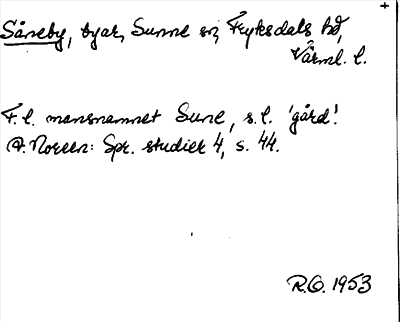 +
Såneby, byar, Sunne sn, Fryksdals hd,
Värml. l.
F. l. mansnamnet Sune, s. l. 'gård'.
A. Noreen: Spr. studier 4, s. 44.
R.O. 1953